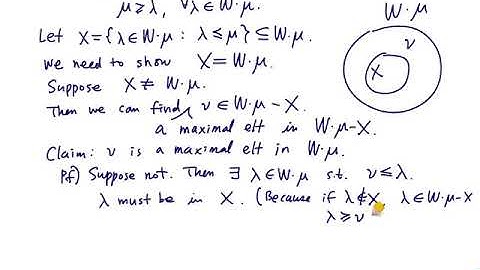 μ ≥ λ, ∀λ ∈ W·μ.
W·μ
Let X = {λ ∈ W·μ : λ ≤ μ} ⊆ W·μ.
We need to show X = W·μ.
Suppose X ≠ W·μ.
Then we can find ν ∈ W·μ - X.
a maximal elt in W·μ-X.
Claim: ν is a maximal elt in W·μ.
Pf) Suppose not. Then ∃ λ ∈ W·μ s.t. ν ≤ λ.
λ must be in X. (Because if λ ∉ X, λ ∈ W·μ-X
λ ≥ ν
ν
X